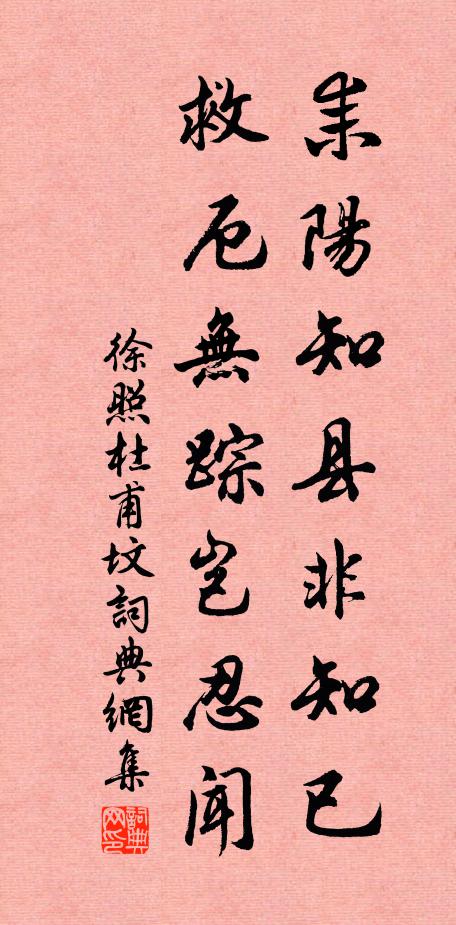 耒陽知县非知己
救厄無踪岂忍闻
徐照杜甫坟詞典網集
詞典网印